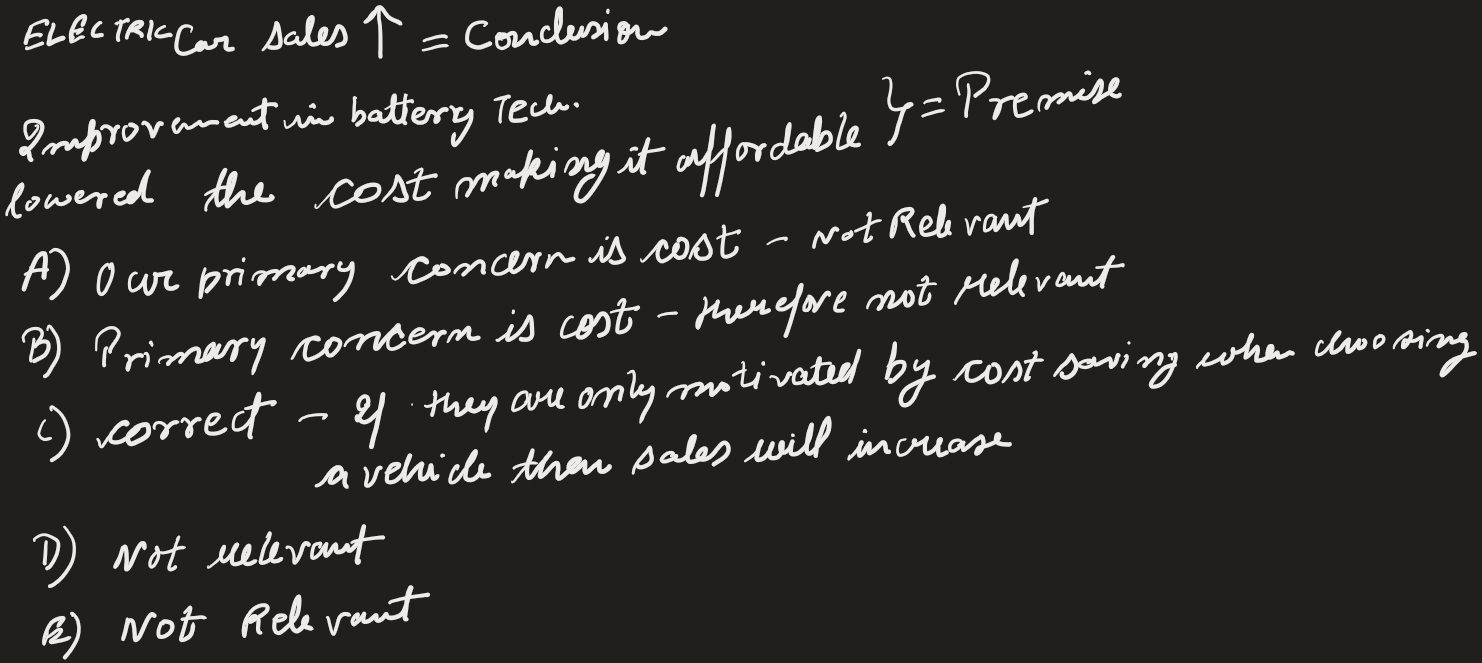 ELECTRIC Car sales ↑ = Conclusion
Improvement in battery Tech.
lowered the cost making it affordable } = Premise
A) Our primary concern is cost - not Relevant
B) Primary concern is cost - therefore not relevant
C) correct - If they are only motivated by cost saving when choosing
a vehicle then sales will increase
D) Not relevant
E) Not Relevant